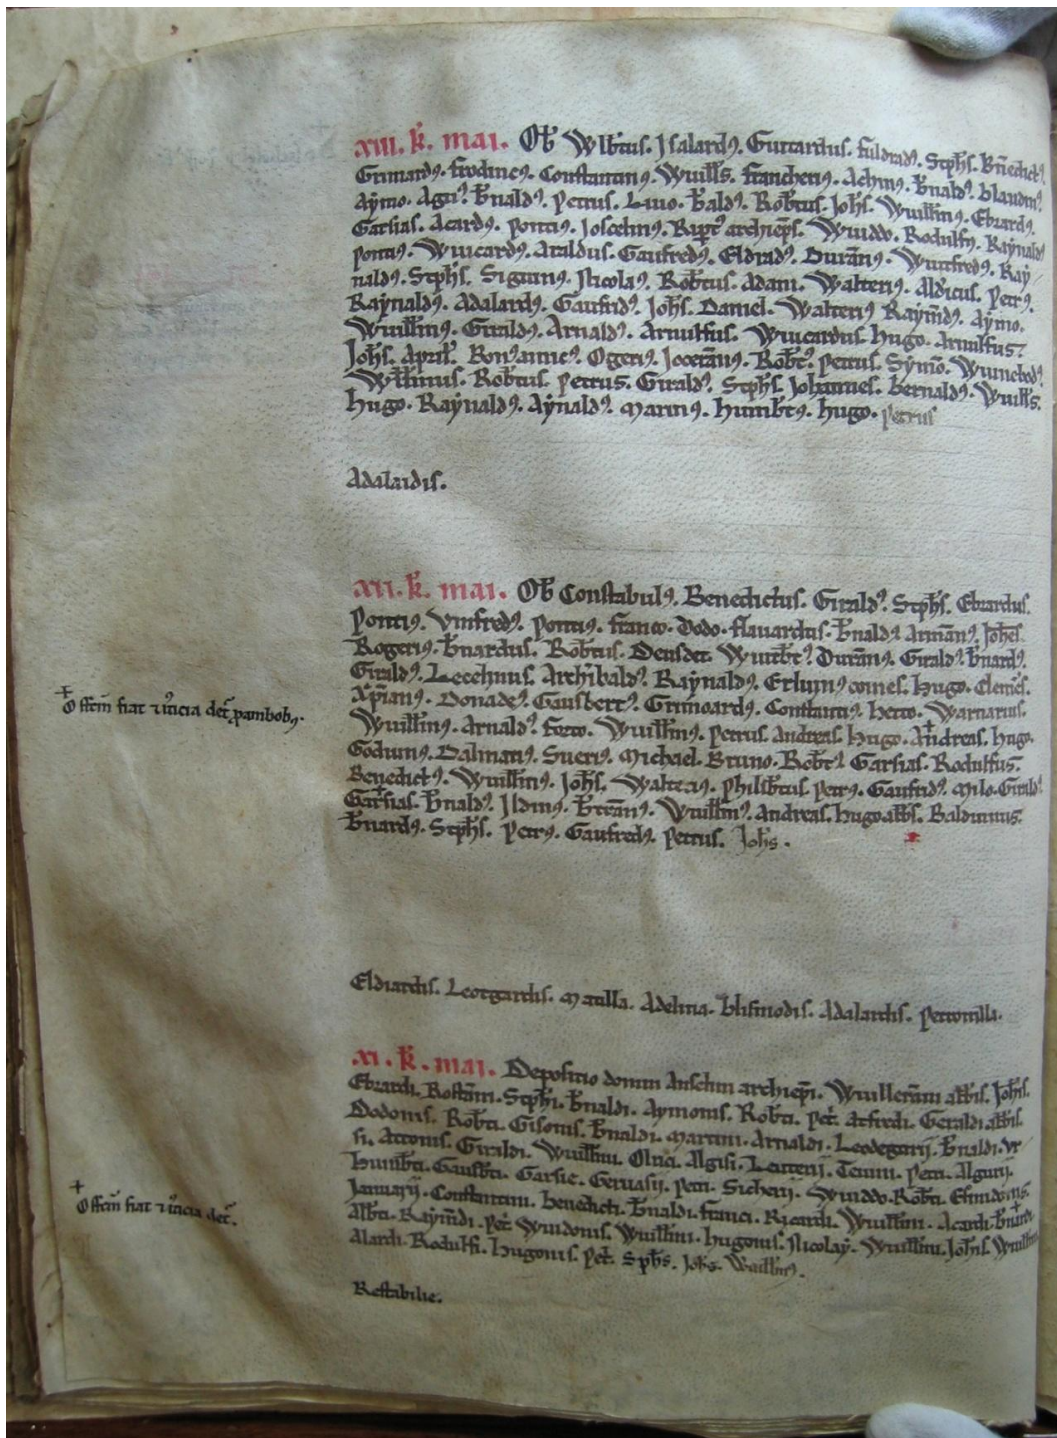 xiii. k̄. mai. Ob̄ Wlb̄tus. Isalardꝰ. Guitardus. Fuldradꝰ. Stph̄s. Bn̄edictꝰ.
Grimardꝰ. Frodinꝰ. Constantinꝰ. Wuill̄s. Francheriꝰ. Achinꝰ. B̄naldꝰ. blandinꝰ.
Aymo. B̄naldꝰ. Petrus. Liuo. B̄aldꝰ. Rob̄tus. Joh̄s. Wuill̄inꝰ. Ebrardꝰ.
Garsias. Acardꝰ. Pontiꝰ. Joscelinꝰ. archiep̄s. Wuiddo. Rodulfꝰ. Raynaldꝰ
Pontiꝰ. Wuicardꝰ. Ataldus. Gaufredꝰ. Eldradꝰ. Durān ꝰ. Wuifredꝰ. Ray
naldꝰ. Stph̄s. Siguinꝰ. Nicolaꝰ. Rob̄tus. Adam. Walteriꝰ. Aldicus. Petrꝰ.
Raynaldꝰ. Adalardꝰ. Gaufridꝰ. Joh̄s. Daniel. Walteriꝰ Raym̄dꝰ. Aymo.
Wuill̄inꝰ. Giraldꝰ. Arnaldꝰ. Arnulfus. Wuicardus. Hugo. Arnulfus.
Joh̄s. Ogeriꝰ. Jocerānꝰ. Rob̄tꝰ. Petrus. Symō. Wuinebodꝰ.
Wll̄inus. Rob̄tus. Petrus. Giraldꝰ. Stph̄s. Johannes. Bernaldꝰ. Wuill̄s.
Hugo. Raynaldꝰ. Aynaldꝰ. Marinꝰ. Humb̄tꝰ. Hugo. Petrus
Adalaidis.
xii. k̄. mai. Ob̄ Constabulꝰ. Benedictus. Giraldꝰ. Stph̄s. Ebrardus.
Pontiꝰ. Vnifredꝰ. Pontiꝰ. Franco. Dodo. Flauardus. B̄naldꝰ Armānꝰ. Joh̄s.
Rogeriꝰ. B̄nardus. Rob̄tus. Deusdet. Wuitb̄tꝰ. Durānꝰ. Giraldꝰ. B̄nardꝰ.
Giraldꝰ. Lecelinus. Archib̄aldꝰ. Raynaldꝰ. Erluinꝰ comes. Hugo. Clem̄s.
Xp̄ianꝰ. Donadeꝰ. Gausbertꝰ. Grimoardꝰ. Constantiꝰ. Hetto. Warnarius.
Wuill̄inꝰ. Arnaldꝰ. Forto. Wuill̄inꝰ. Petrus. Andreas. Hugo. Andreas. Hugo.
✝ Offm̄ fiat ⁊ iꝰticia det᷑ pambobꝰ.
Godinus. Dalmatiꝰ. Sueriꝰ. Michael. Bruno. Rob̄tꝰ. Garsias. Rodulfus.
Benedictꝰ. Wuill̄inꝰ. Joh̄s. Walteriꝰ. Philib̄tus. Petrꝰ. Gaufridꝰ. Milo. Giraldꝰ.
Garsias. B̄naldꝰ. Ildinꝰ. B̄trānꝰ. Wuill̄mꝰ. Andreas. Hugo abb̄s. Balduinus.
B̄nardꝰ. Stph̄s. Petrꝰ. Gaufredꝰ. Petrus. Joh̄s.
Eldiardis. Leotgardis. Matilla. Adelina. Blismodis. Adalardis. Petronilla.
xi. k̄. mai. Depositio domni Anselmi archiep̄i. Wuillerāni abb̄is. Joh̄is.
Ebrardi. Rostāni. Stph̄i. B̄naldi. Aymonis. Rob̄ti. Pet̄. Atfredi. Geraldi abb̄is.
Dodonis. Rob̄ti. Gisonis. B̄naldi. Martini. Arnaldi. Leodegarij. B̄naldi. Vr
si. Attonis. Giraldi. Wuill̄mi. Olrici. Algisi. Leiterij. Petri. Algerij.
Humb̄ti. Gausb̄ti. Garsie. Geruasij. Petri. Sicherij. Wuiddo. Rob̄ti.
Januarij. Constantini. Benedicti. B̄naldi. Franci. Ricardi. Wuill̄mi. Acardi. B̄nardi
✝ Offm̄ fiat ⁊ iꝰticia det᷑.
Alb̄ti. Raym̄di. Pet̄. Wuidonis. Wuill̄mi. Hugonis. Nicolay. Wuill̄mi. Joh̄is. Wuill̄mi
Alardi. Rodulfi. Hugonis. Pet̄. Sph̄s. Joh̄s. Wuill̄mꝰ.
Restabilie.